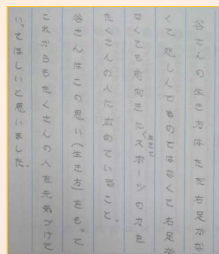 谷さんの生き方はただ右足がな
くて悲しんでるのではなくて右足が
なくても前向きにスポーツの力を
たくさんの人に広めている。
谷さんはこの思い(生き方)をもって
これからもたくさんの人を元気づけて
いってほしいと思いました。